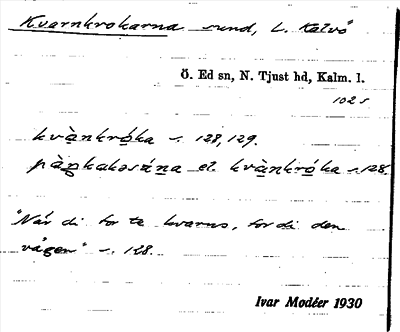 Kvarnkrokarna sund, L. Kalvö
Ö. Ed sn, N. Tjust hd, Kalm. l.
102 s
kvàṇkrọ́ka s. 128, 129.
el. kvàṇkrọ́ka s. 128.
"När di for te kvarns, for di den
vägen" s. 128.
Ivar Modéer 1930